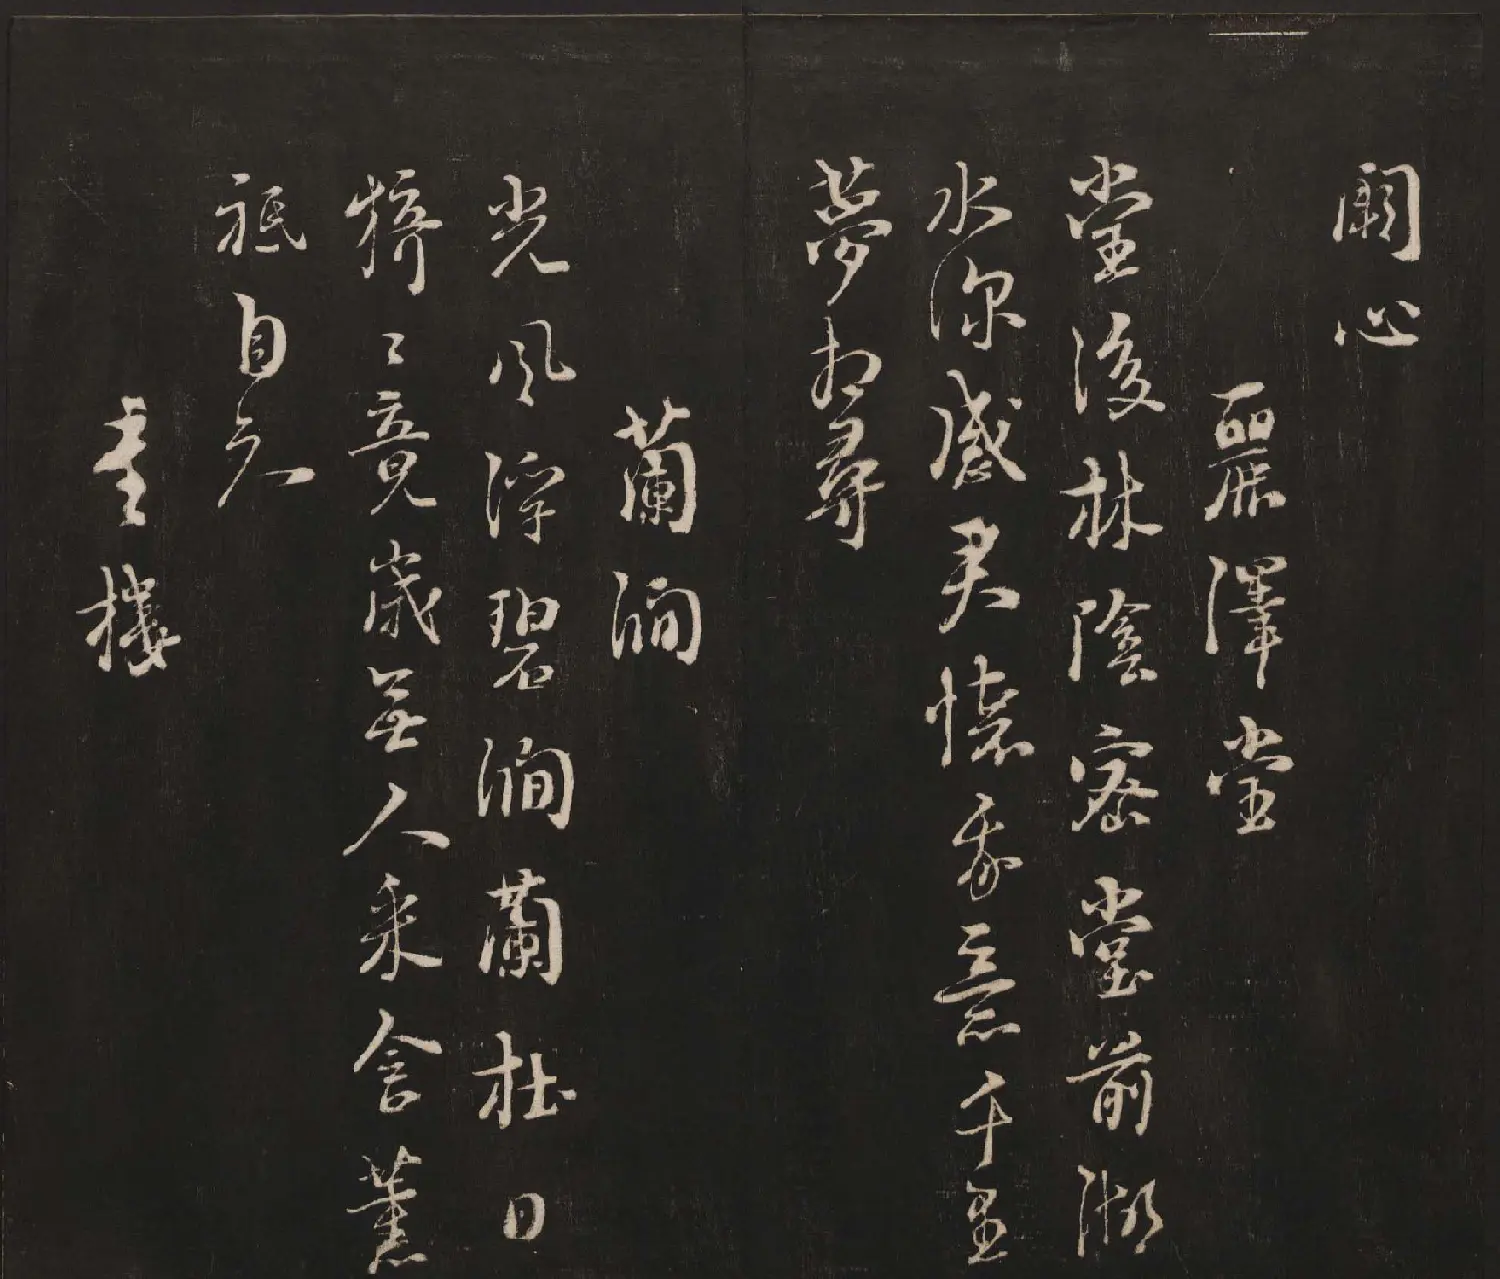 關心
麗澤堂
堂後林陰密堂前湖
水深感君懷我意千里
夢相尋
蘭澗
光風浮碧澗蘭杜日
猗〻竟歲無人采含薰
祗自知
書樓